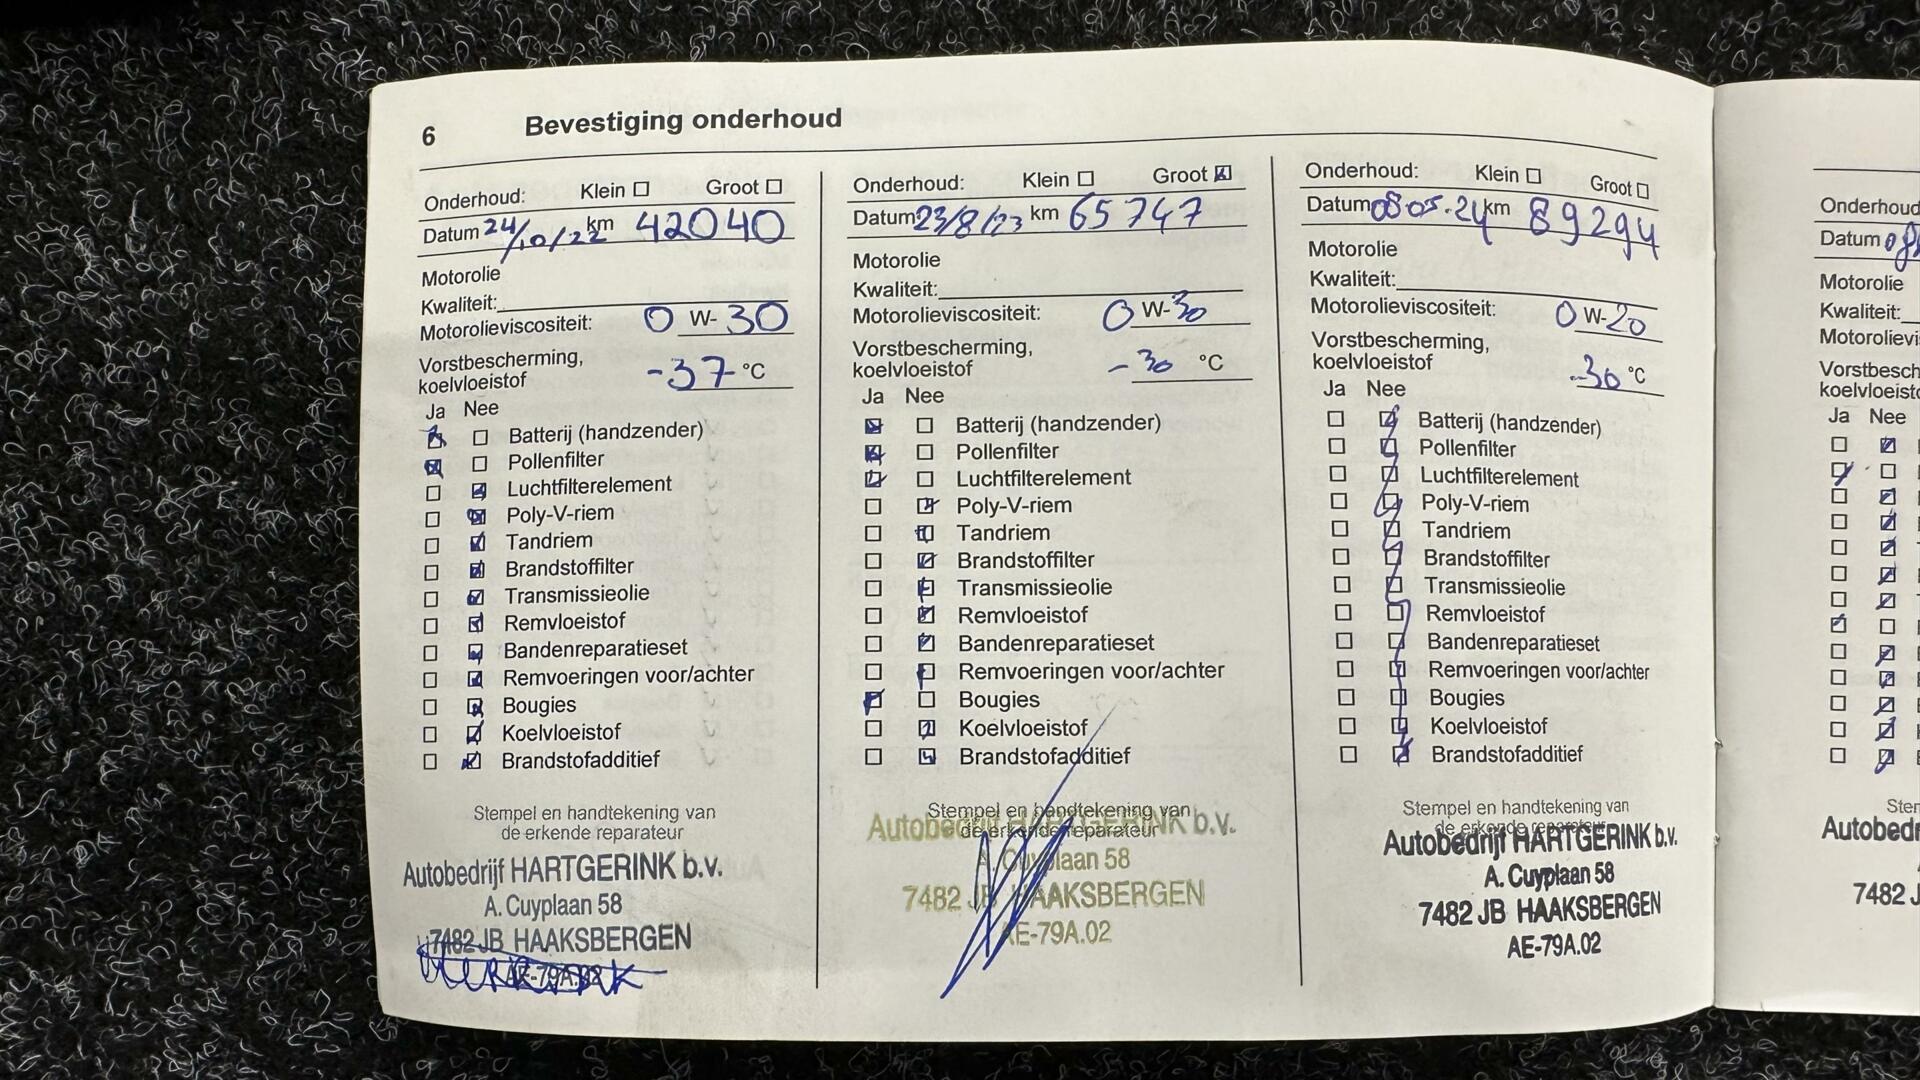 6 Bevestiging onderhoud
Onderhoud: Klein Groot
Datum 24/10/22 km 42040
Motorolie
Kwaliteit:
Motorolieviscositeit: 0 W-30
Vorstbescherming,
koelvloeistof -37 °C
Ja Nee
Batterij (handzender)
Pollenfilter
Luchtfilterelement
Poly-V-riem
Tandriem
Brandstoffilter
Transmissieolie
Remvloeistof
Bandenreparatieset
Remvoeringen voor/achter
Bougies
Koelvloeistof
Brandstofadditief
Stempel en handtekening van
de erkende reparateur
Autobedrijf HARTGERINK b.v.
A. Cuyplaan 58
7482 JB HAAKSBERGEN
AE-79A.02
Onderhoud: Klein Groot
Datum 23/8/23 km 65747
Motorolie
Kwaliteit:
Motorolieviscositeit: 0 W-30
Vorstbescherming,
koelvloeistof -30 °C
Ja Nee
Batterij (handzender)
Pollenfilter
Luchtfilterelement
Poly-V-riem
Tandriem
Brandstoffilter
Transmissieolie
Remvloeistof
Bandenreparatieset
Remvoeringen voor/achter
Bougies
Koelvloeistof
Brandstofadditief
Stempel en handtekening van
de erkende reparateur
Autobedrijf HARTGERINK b.v.
A. Cuyplaan 58
7482 JB HAAKSBERGEN
AE-79A.02
Onderhoud: Klein Groot
Datum 08-05-24 km 89294
Motorolie
Kwaliteit:
Motorolieviscositeit: 0 W-20
Vorstbescherming,
koelvloeistof -30 °C
Ja Nee
Batterij (handzender)
Pollenfilter
Luchtfilterelement
Poly-V-riem
Tandriem
Brandstoffilter
Transmissieolie
Remvloeistof
Bandenreparatieset
Remvoeringen voor/achter
Bougies
Koelvloeistof
Brandstofadditief
Stempel en handtekening van
de erkende reparateur
Autobedrijf HARTGERINK b.v.
A. Cuyplaan 58
7482 JB HAAKSBERGEN
AE-79A.02
Onderhoud
Datum
Motorolie
Kwaliteit:
Motorolievi
Vorstbesch
koelvloeisto
Ja Nee
Ster
Autobed
7482 J